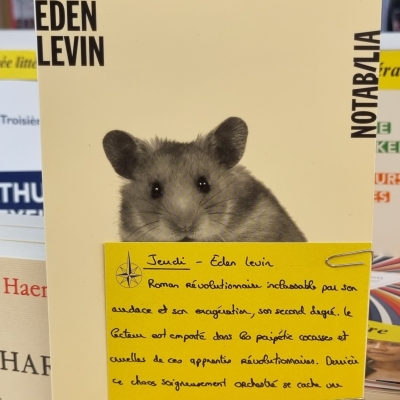 EDEN
LEVIN
NOTAB/LIA
Jeudi - Eden Levin
Roman révolutionnaire inclassable par son
audace et son exagération, son second degré. Le
lecteur est emporté dans les péripétie cocasses et
cruelles de ces apprentis révolutionnaires. Derrière
ce chaos soigneusement orchestré se cache une
ée litté
Troisièm
THU
Haen
HAR